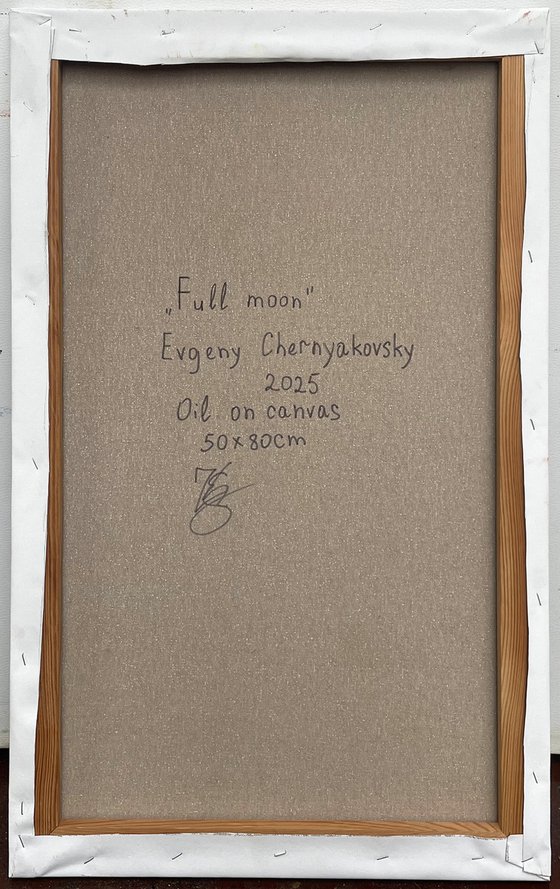 „Full moon"
Evgeny Chernyakovsky
2025
Oil on canvas
50x80cm